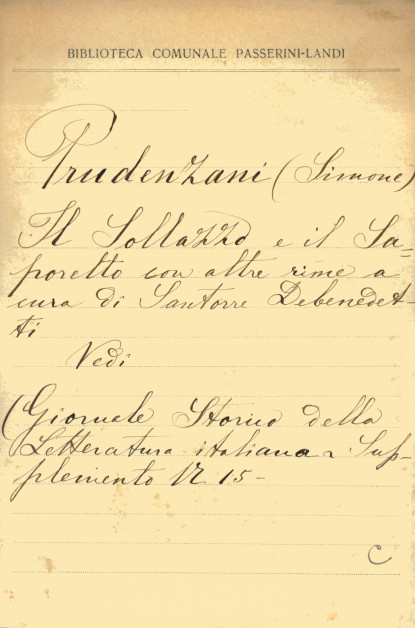 BIBLIOTECA COMUNALE PASSERINI-LANDI
Prudenzani (Simone)
Il Sollazzo e il Sa=
poretto con altre rime a
cura di Santorre Debenedet-
ti
Vedi
(Giornale Storico della
Letteratura italiana - Sup-
plemento N 15-
C